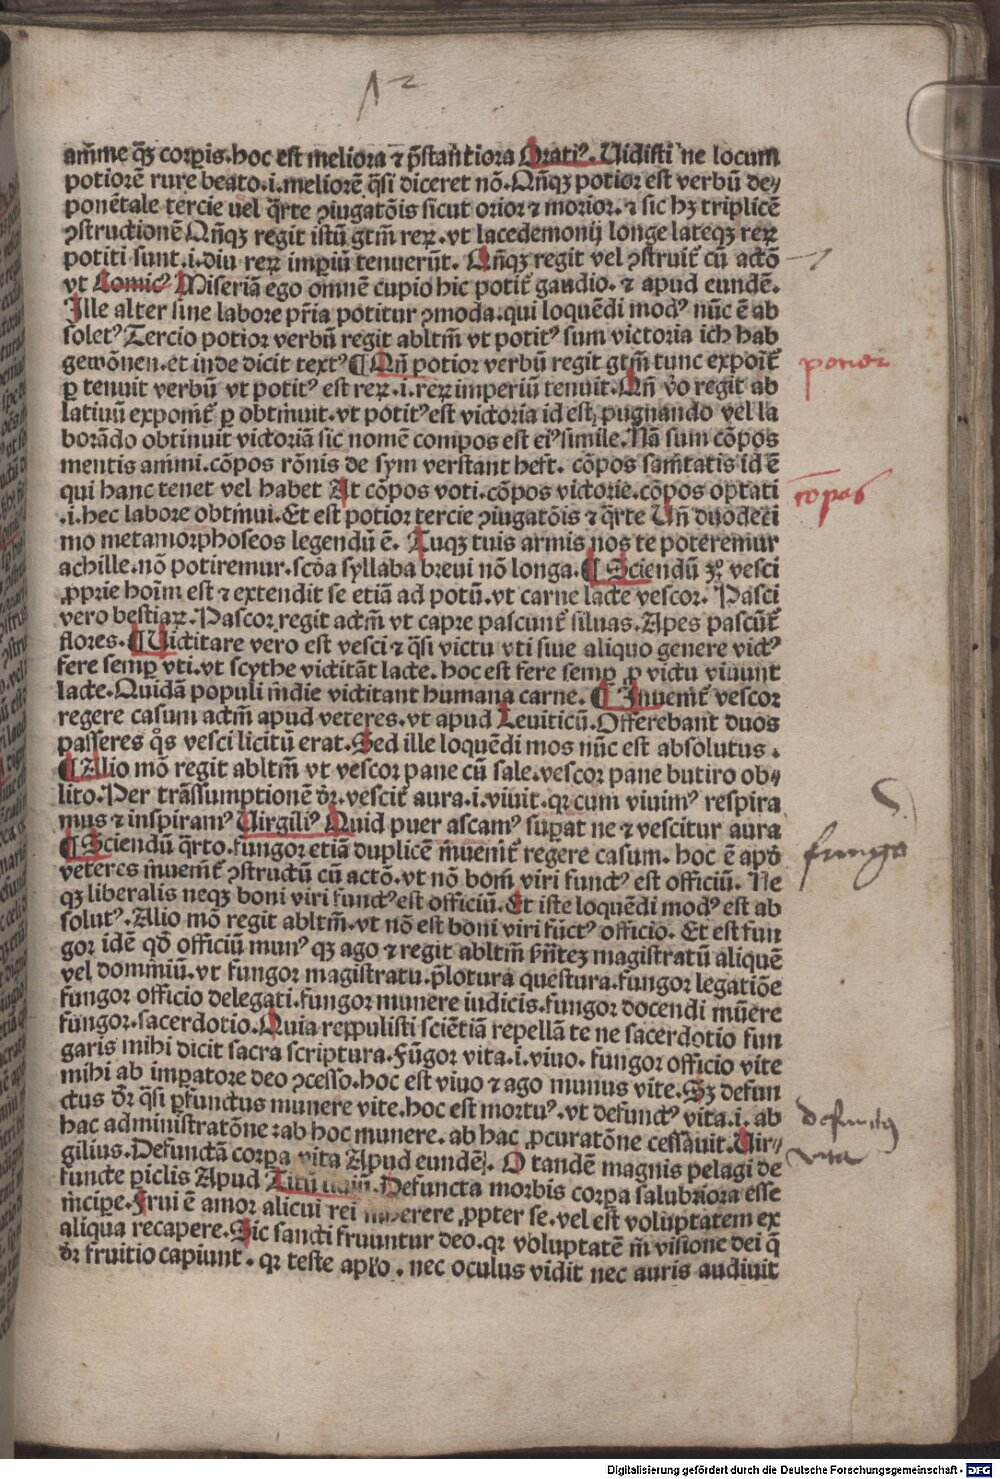 12
am̄me q̄ꝫ corꝑis.hoc est meliora ⁊ p̄stantiora Oratiꝰ. Uidisti ne locum
potiorē rure beato.i.meliorē q̄si diceret nō.Qn̄qꝫ potior est verbū de⸗
ponētale tercie uel q̄rte ꝯiugatōis sicut orior ⁊ morior. ⁊ sic hꝫ triplicē
ꝯstructionē Qn̄qꝫ regit istū gtm̄ reꝝ.vt lacedemonij longe lateqꝫ reꝝ
potiti sunt.i.diu reꝝ imꝑiū tenuerūt. Qn̄qꝫ regit vel ꝯstruit̄ cū actō
vt Comicꝰ Miseriā ego omnē cupio hic potit̄ gaudio. ⁊ apud eundē.
Ille alter sine labore pr̄ia potitur ꝯmoda.qui loquēdi modꝰ nūc ē ab
soletꝰ Tercio potior verbū regit abltm̄ vt potitꝰ sum victoria ich hab
gewōnen.et inde dicit textꝰ ¶ Qn̄ potior verbū regit gtm̄ tunc exponit̄
ꝑ tenuit verbū vt potitꝰ est reꝝ.i.reꝝ imperiū tenuit.Qn̄ v̊o regit ab
latiuū exponit̄ ꝑ obtinuit.vt potitꝰ est victoria id est, pugnando vel la
borādo obtinuit victoriā sic nomē compos est eiꝰ simile.Nā sum cōpos
mentis animi.cōpos rōnis de sym verstant heft. cōpos sanitatis id ē
qui hanc tenet vel habet At cōpos voti.cōpos victorie.cōpos optati
.i.hec labore obtinui.Et est potior tercie ꝯiugatōis ⁊ q̄rte Un̄ duodeci
mo metamorphoseos legendū ē. Auqꝫ tuis armis nos te poteremur
achille.nō potiremur.scd̄a syllaba breui nō longa.¶ Sciendū ꝙ vesci
ꝓprie hoīm est ⁊ extendit se etiā ad potū.vt carne lacte vescor. Pasci
vero bestiaꝝ.Pascor regit actm̄ vt capre pascunt̄ siluas.Apes pascūt̄
flores.¶Uictitare vero est vesci ⁊ q̄si victu vti siue aliquo genere victꝰ
fere semꝑ vti.vt scythe victitāt lacte. hoc est fere semꝑ ꝓ victu viuunt
lacte.Quidā populi īndie victitant humana carne. ¶ Inuenit̄ vescor
regere casum actm̄ apud veteres.vt apud Leuiticū.Offerebant duos
passeres q̊s vesci licitū erat.Sed ille loquēdi mos nūc est absolutus.
¶Alio mō regit abltm̄ vt vescor pane cū sale.vescor pane butiro ob⸗
lito.Per trāssumptionē dr̄.vescit̄ aura.i.viuit.qꝛ cum viuimꝰ respira
mus ⁊ inspiramꝰ Uirgiliꝰ Quid puer ascamꝰ suꝑat ne ⁊ vescitur aura
¶Sciendū q̄rto.fungor etiā duplicē inuenit̄ regere casum. hoc ē apd̄
veteres inuenit̄ ꝯstructū cū actō.vt nō boni viri functꝰ est officiū. Ne
qꝫ liberalis neqꝫ boni viri functꝰ est officiū.Et iste loquēdi modꝰ est ab
solutꝰ.Alio mō regit abltm̄.vt nō est boni viri fūctꝰ officio. Et est fun
gor idē qd̄ officiū munꝰ qꝫ ago ⁊ regit abltm̄ sn̄tez magistratū aliquē
vel dominiū.vt fungor magistratu.p̄lotura questura.fungor legatiōe
fungor officio delegati.fungor munere iudicis.fungor docendi mūere
fungor.sacerdotio.Quia repulisti sciētiā repellā te ne sacerdotio fun
garis mihi dicit sacra scriptura.Fūgor vita.i.viuo. fungor officio vite
mihi ab imꝑatore deo ꝯcesso.hoc est viuo ⁊ ago munus vite.Sꝫ defun
ctus dr̄ q̄si ꝑfunctus munere vite.hoc est mortuꝰ.vt defunctꝰ vita.i. ab
hac administratōne ⁊ab hoc munere. ab hac ꝓcuratōne cessauit.Uir⸗
gilius.Defunctā corꝑa vita Apud eundē. O tandē magnis pelagi de
functe ꝑiclis Apud Titū liuiū.Defuncta morbis corꝑa salubriora esse
incipe.Frui ē amor alicui rei inherere ꝓpter se.vel est voluptatem ex
aliqua recapere.Sic sancti fruuntur deo.qꝛ voluptatē in visione dei q̄
dr̄ fruitio capiunt. qꝛ teste apl̄o. nec oculus vidit nec auris audiuit
potior
cōpos
fungo
defunctus
vita
Digitalisierung gefördert durch die Deutsche Forschungsgemeinschaft - DFG